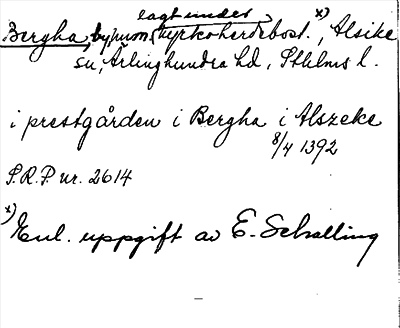 lagt under x)
Bergha, by, num. kyrkoherdebost., Alsike
sn, Ärlinghundra hd, Sthlms l.
i prestgården i Bergha i Alszeke
8/4 1392
S.R.P. nr. 2614
x) Enl. uppgift av E. Schalling